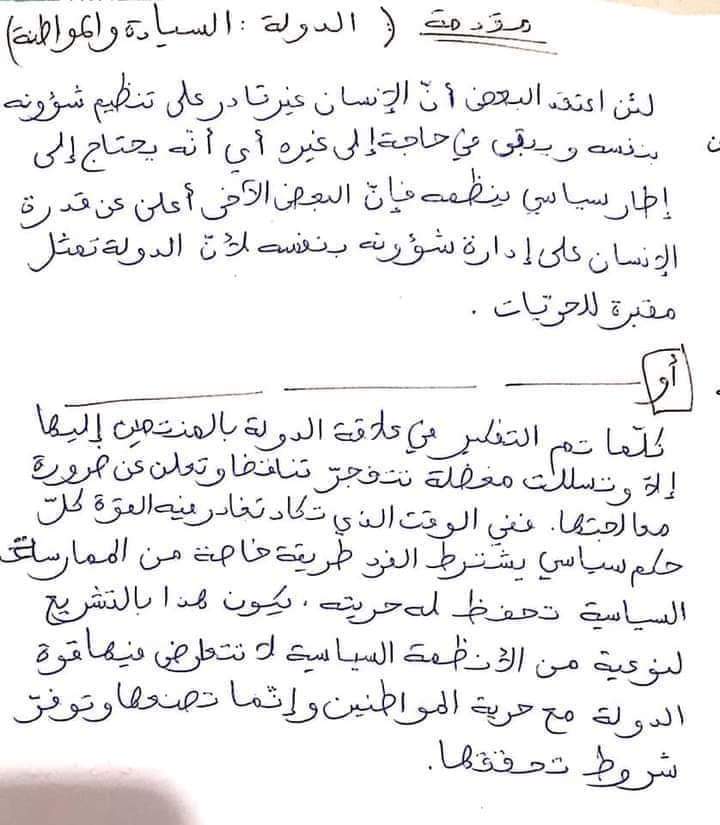 مقدمة ( الدولة : السيادة والمواطنة)
لئن اعتقد البعض أنّ الإنسان غير قادر على تنظيم شؤونه
بنفسه ويبقى في حاجة إلى غيره أي أنّه يحتاج إلى
إطار سياسي ينظمه فإنّ البعض الآخر أعلن عن قدرة
الإنسان على إدارة شؤونه بنفسه لأنّ الدولة تمثل
مقبرة للحرّيات .
أو
كلّما تم التفكير في علاقة الدولة بالمنتمين إليها
إلا وتسللت معضلة تتفجرّ تناقضا وتعلن عن ضرورة
معالجتها. ففي الوقت الذي تكاد تغادر فيه القوة كلّ
حكم سياسي يشترط الفرد طريقة خاصة من الممارسات
السياسية تحفظ له حريته ، يكون هذا بالتشريع
لنوعية من الأنظمة السياسية لا تتعارض فيها قوة
الدولة مع حرية المواطنين وإنّما تصنعها وتوفرّ
شروط تحققها.